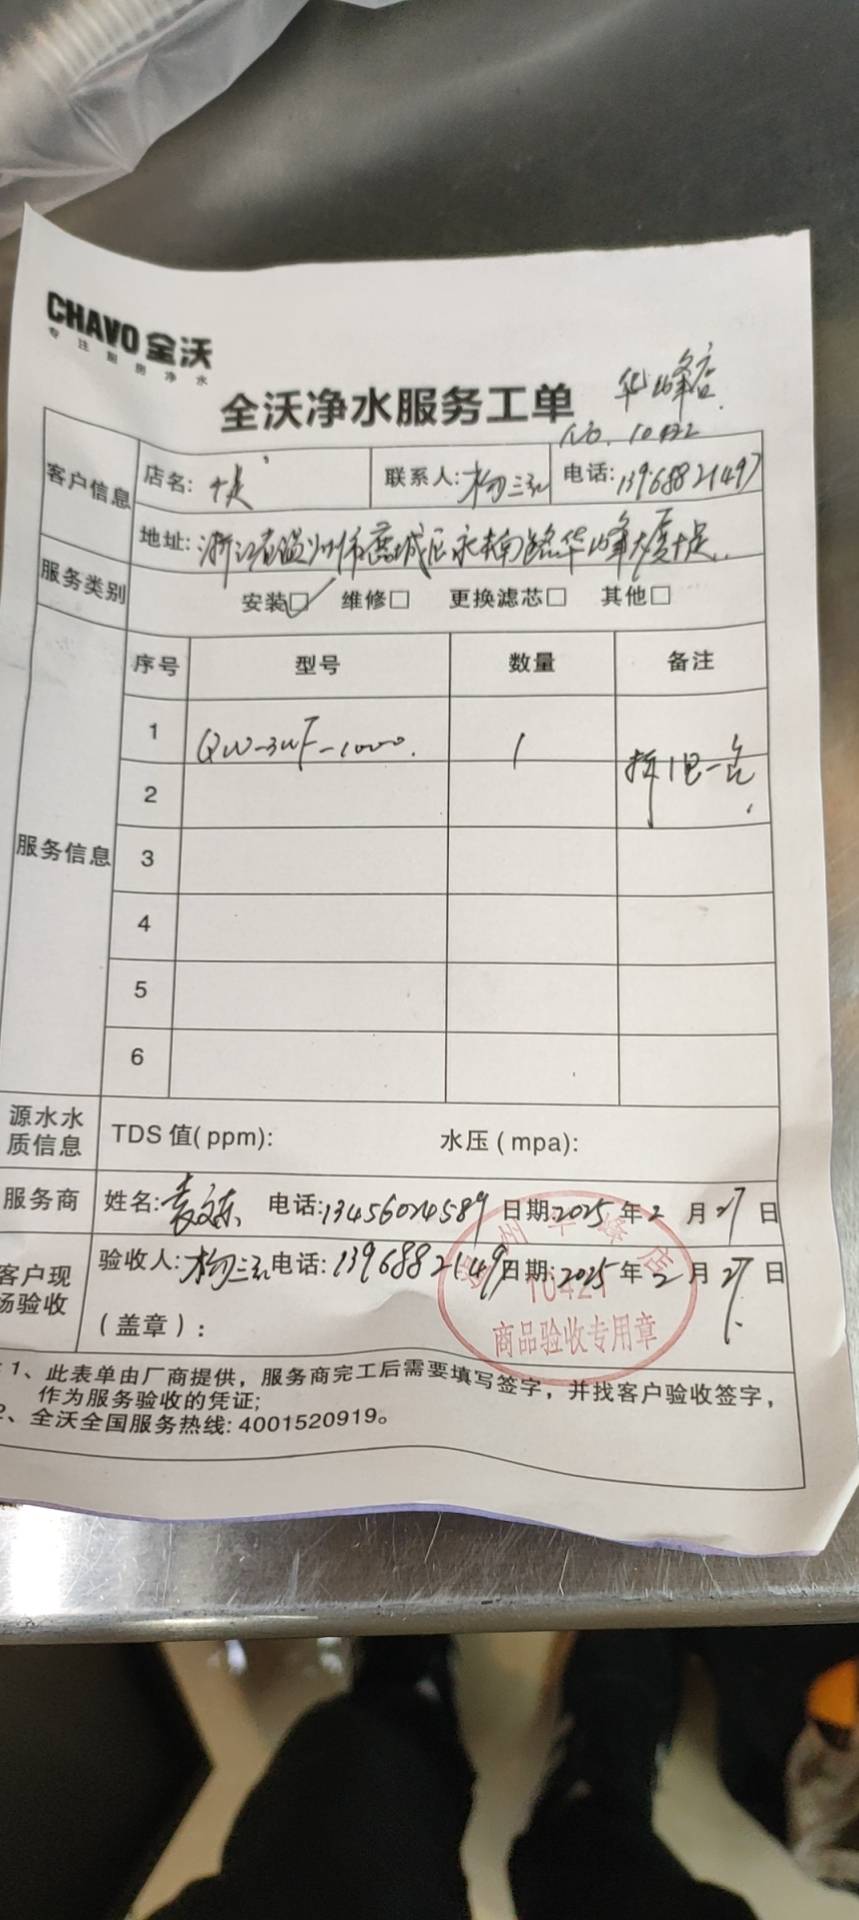 CHAVO 全沃
专注厨房净水
全沃净水服务工单
华峰店
NO. 10422
客户信息
店名: 十足
联系人: 杨三
电话: 13968821497
地址: 浙江省温州市鹿城区永南路华峰大厦十足
服务类别
安装☑ 维修□ 更换滤芯□ 其他□
服务信息
序号 型号 数量 备注
1 QW-3WF-1000. 1 拆旧一台
2
3
4
5
6
源水水质信息
TDS 值(ppm): 水压(mpa):
服务商 姓名: 袁文东 电话: 13456024589 日期: 2025年2月27日
客户现场验收
验收人: 杨三 电话: 13968821497 日期: 2025年2月27日
(盖章):
州华峰店
商品验收专用章
1、此表单由厂商提供，服务商完工后需要填写签字，并找客户验收签字，
作为服务验收的凭证;
、全沃全国服务热线: 4001520919。